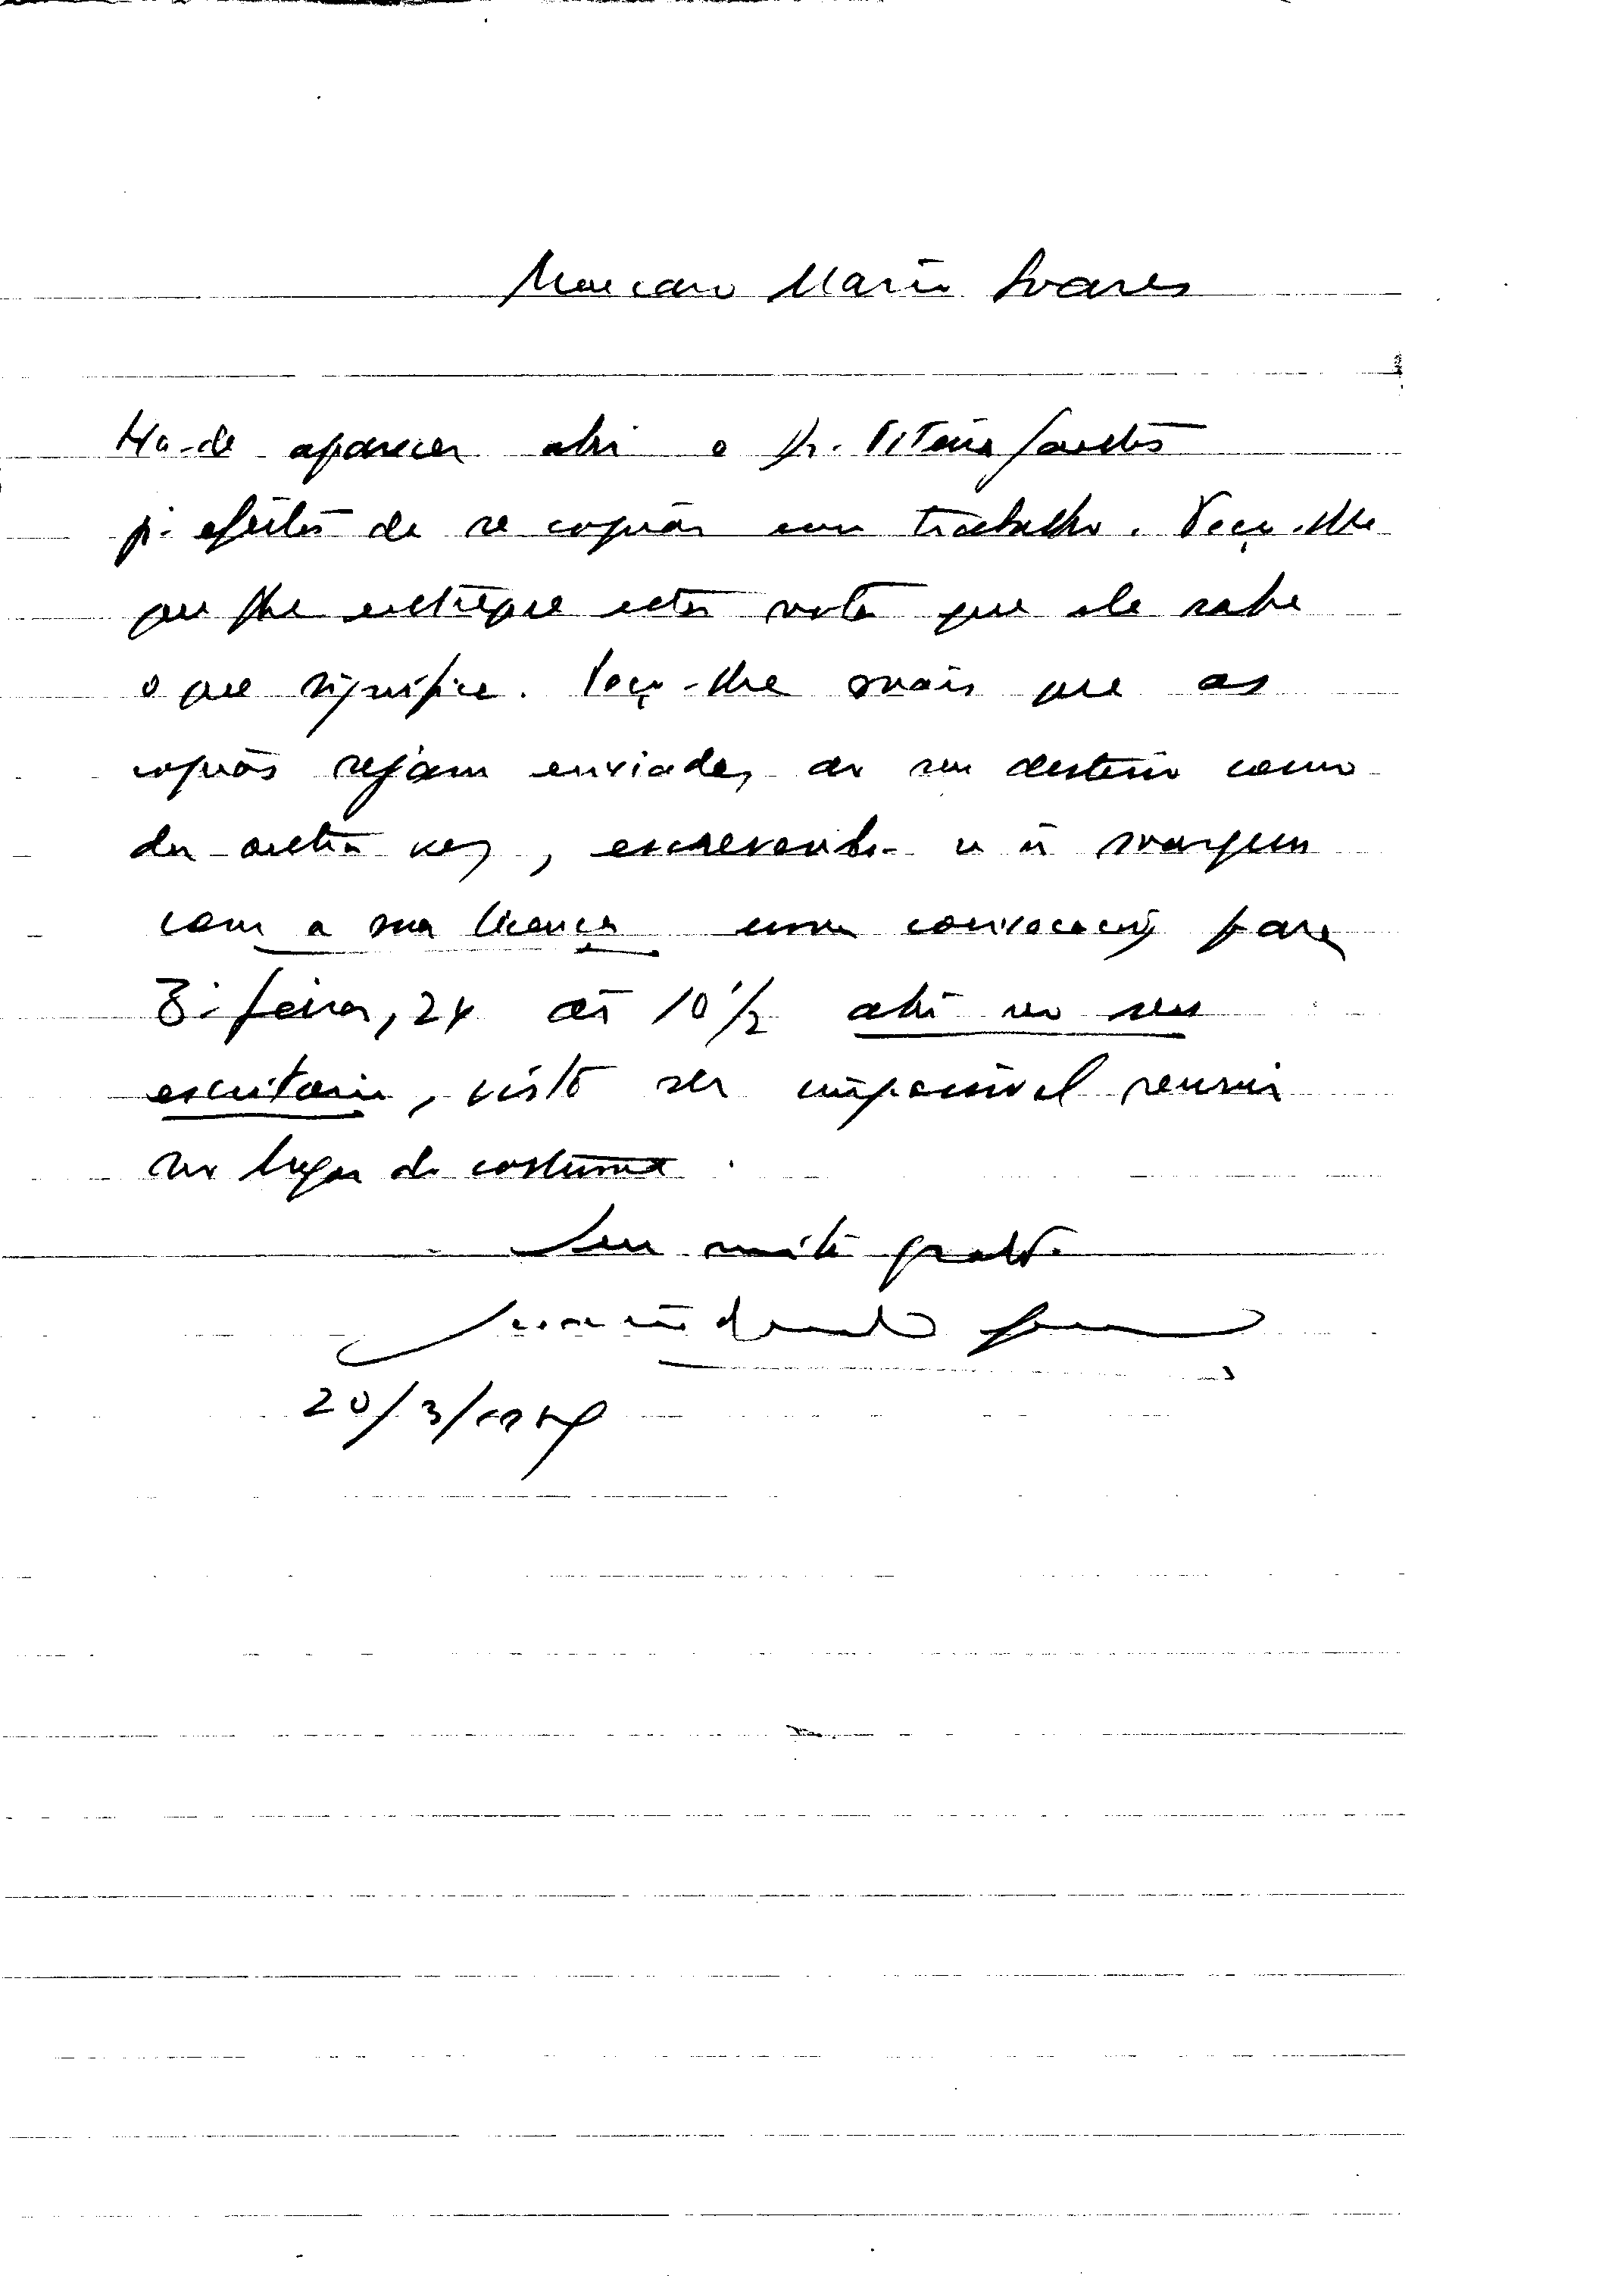 Meu caro Mario Soares
Ha-de aparecer ahi o Dr. Vitorino
p.ª efeitos de se copiar um trabalho. Peço-lhe
que lhe entregue esta nota que ele sabe
o que significa. Peço-lhe mais que as
copias sejam enviadas ao seu destino como
da outra vez, escrevendo-se à margem
com a sua licença uma convocação para
3.ª feira, 24 ás 10 1/2 ahi no seu
escritorio, visto ser impossivel reunir
no lugar do costume.
Seu muito grato
20/3/